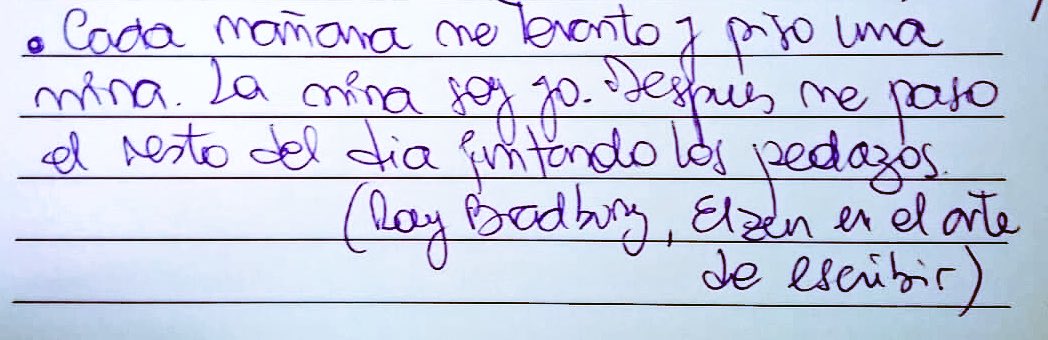 • Cada mañana me levanto y piso una
mina. La mina soy yo. Después me paso
el resto del día juntando los pedazos.
(Ray Bradbury, El zen en el arte
de escribir)